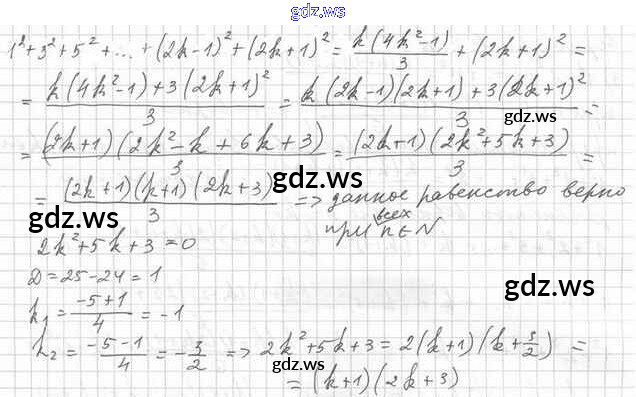 gdz.ws
1² + 3² + 5² + ... + (2k-1)² + (2k+1)² = k(4k²-1)/3 + (2k+1)² =
= (k(4k²-1) + 3(2k+1)²)/3 = (k(2k-1)(2k+1) + 3(2k+1)²)/3 =
= ((2k+1)(2k²-k+6k+3))/3 = ((2k+1)(2k²+5k+3))/3 =
gdz.ws
= ((2k+1)(k+1)(2k+3))/3 => данное равенство верно
при всех n∈N
gdz.ws
2k²+5k+3=0
D=25-24=1
gdz.ws
k₁ = (-5+1)/4 = -1
k₂ = (-5-1)/4 = -3/2 => 2k²+5k+3 = 2(k+1)(k+3/2) =
= (k+1)(2k+3)
gdz.ws